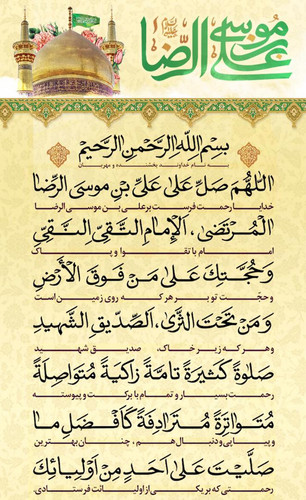 علی بن موسی الرضا
بِسْمِ اللّٰهِ الرَّحْمٰنِ الرَّحِيْمِ
بـه نـام خداونـد بخشنـده و مهربـان
اَللّٰهُمَّ صَلِّ عَلىٰ عَلِيِّ بْنِ مُوسَى الرِّضَا
خدایا رحمت فرست بر علی بن موسی الرضا
الْمُرْتَضىٰ، اَلْإِمَامِ التَّقِيِّ النَّقِيِّ
امـام بـا تقـوا و پـاک
وَحُجَّتِكَ عَلىٰ مَنْ فَوْقَ الْأَرْضِ
و حجّت تو بر هر که روی زمین است
وَمَنْ تَحْتَ الثَّرىٰ، اَلصِّدِّيقِ الشَّهِيدِ
و هر که زیر خاک، صدیق شهید
صَلوٰةً كَثِيرَةً تَامَّةً زَاكِيَةً مُتَوَاصِلَةً
رحمت بسیار و تمام با برکت و پیوسته
مُتَوَاتِرَةً مُتَرَادِفَةً كَأَفْضَلِ مَا
و پیاپی و دنبال هم، چنان بهترین
صَلَّيْتَ عَلىٰ أَحَدٍ مِنْ أَوْلِيَائِكَ
رحمتی که بر یکی از اولیائت فرستادی.